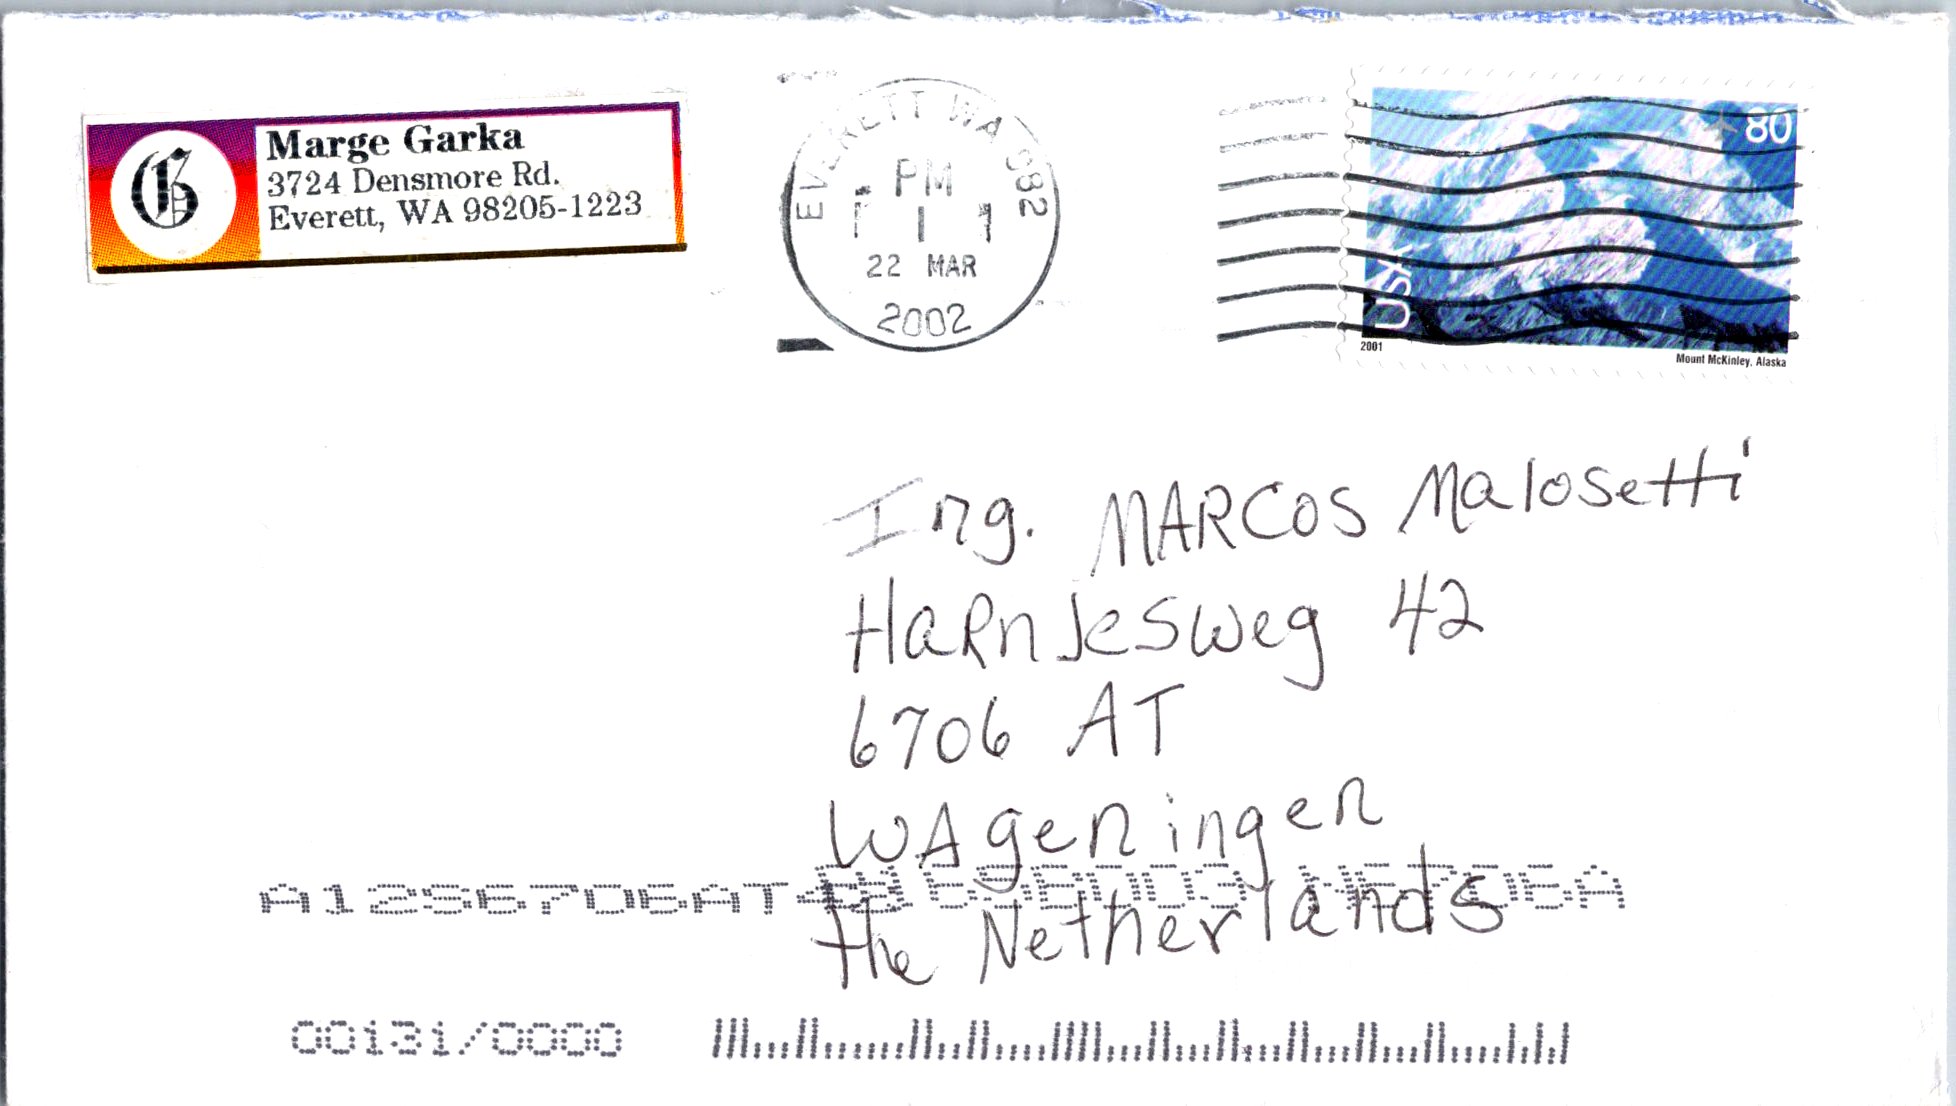 G
Marge Garka
3724 Densmore Rd.
Everett, WA 98205-1223
EVERETT WA 982
PM
22 MAR
2002
80
USA
2001
Mount McKinley, Alaska
Ing. MARCOS Malosetti
HaRnJesweg 42
6706 AT
WAgeningen
the Netherlands
A1256706AT42
00131/0000